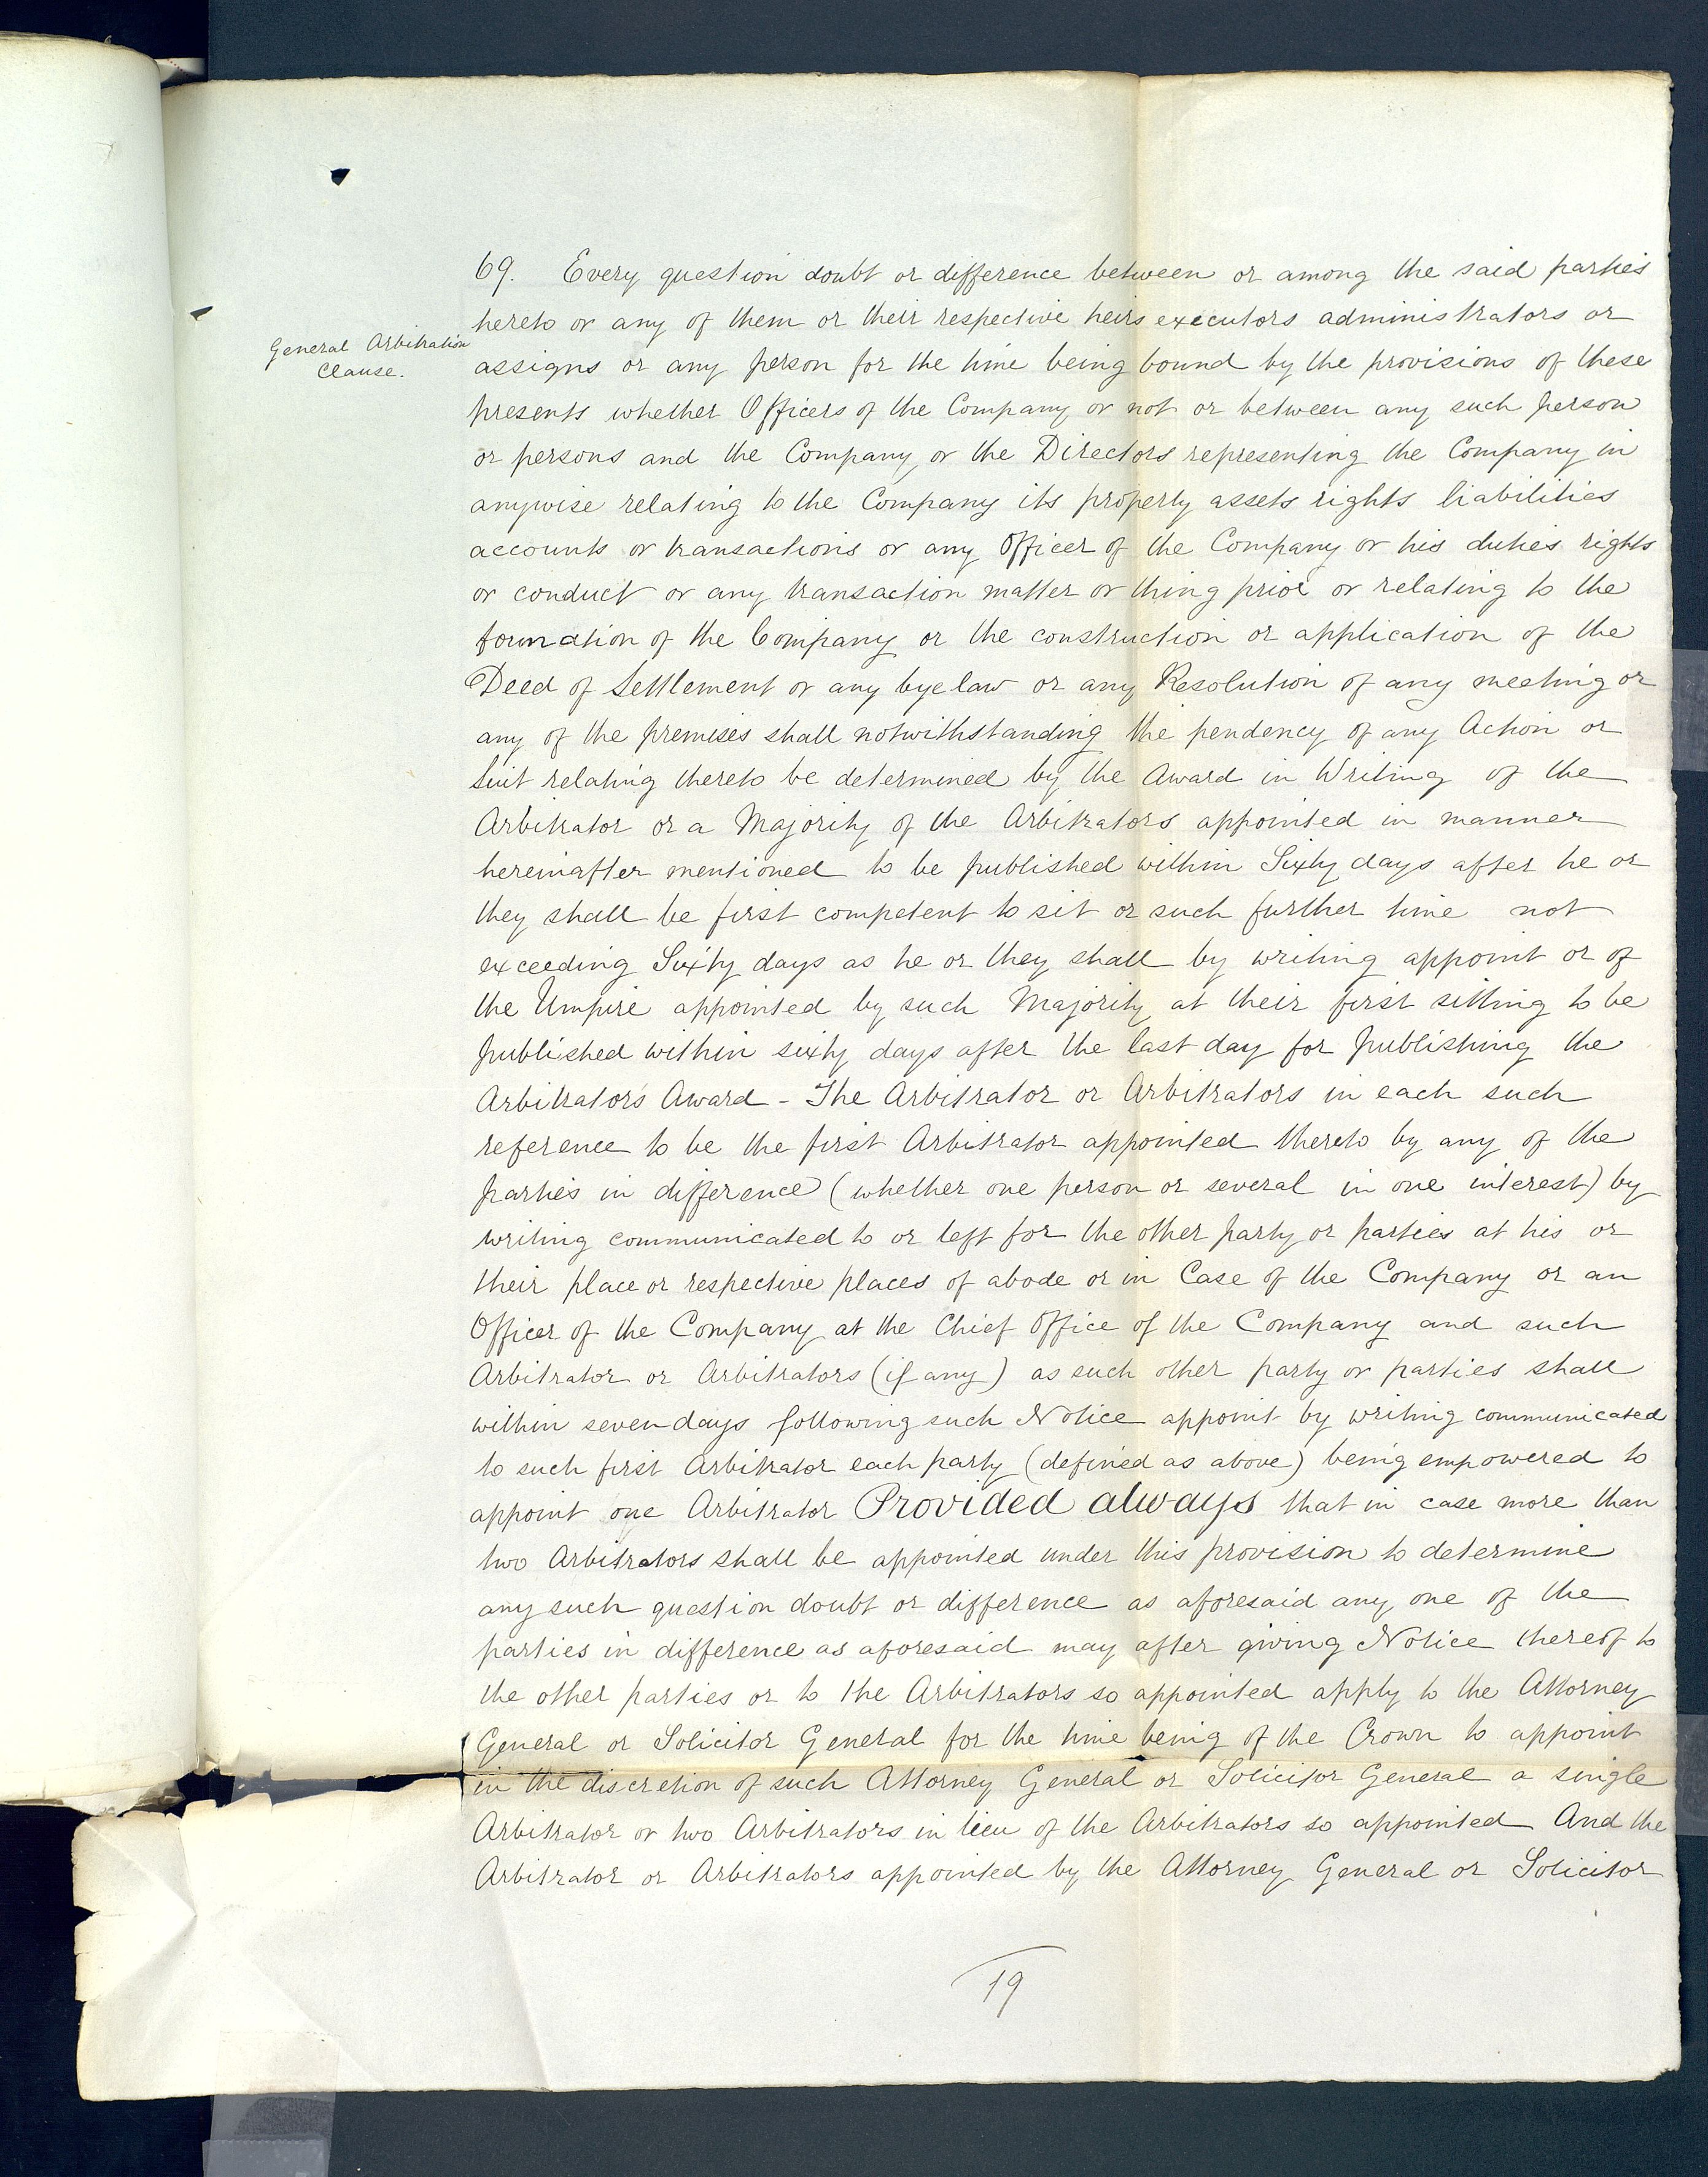 69. Every question doubt or difference between or among the said parties
hereto or any of them or their respective heirs executors administrators or
General Arbitration
Clause.
assigns or any person for the time being bound by the provisions of these
presents whether Officers of the Company or not or between any such person
or persons and the Company or the Directors representing the Company in
anywise relating to the Company its property assets rights liabilities
accounts or transactions or any Officer of the Company or his duties rights
or conduct or any transaction matter or thing prior or relating to the
formation of the Company or the construction or application of the
Deed of Settlement or any bye law or any Resolution of any meeting or
any of the premises shall notwithstanding the pendency of any Action or
Suit relating thereto be determined by the Award in Writing of the
Arbitrator or a Majority of the Arbitrators appointed in manner
hereinafter mentioned to be published within Sixty days after he or
they shall be first competent to sit or such further time not
exceeding Sixty days as he or they shall by writing appoint or of
the Umpire appointed by such Majority at their first sitting to be
published within sixty days after the last day for publishing the
Arbitrators Award - The Arbitrator or Arbitrators in each such
reference to be the first Arbitrator appointed thereto by any of the
parties in difference (whether one person or several in one interest) by
writing communicated to or left for the other party or parties at his or
their place or respective places of abode or in Case of the Company or an
Officer of the Company at the Chief Office of the Company and such
Arbitrator or Arbitrators (if any) as such other party or parties shall
within seven days following such Notice appoint by writing communicated
to such first Arbitrator each party (defined as above) being empowered to
appoint one Arbitrator Provided always that in case more than
two Arbitrators shall be appointed under this provision to determine
any such question doubt or difference as aforesaid any one of the
parties in difference as aforesaid may after giving Notice thereof to
the other parties or to the Arbitrators so appointed apply to the Attorney
General or Solicitor General for the time being of the Crown to appoint
in the discretion of such Attorney General or Solicitor General a single
Arbitrator or two Arbitrators in lieu of the Arbitrators so appointed And the
Arbitrator or Arbitrators appointed by the Attorney General or Solicitor
19